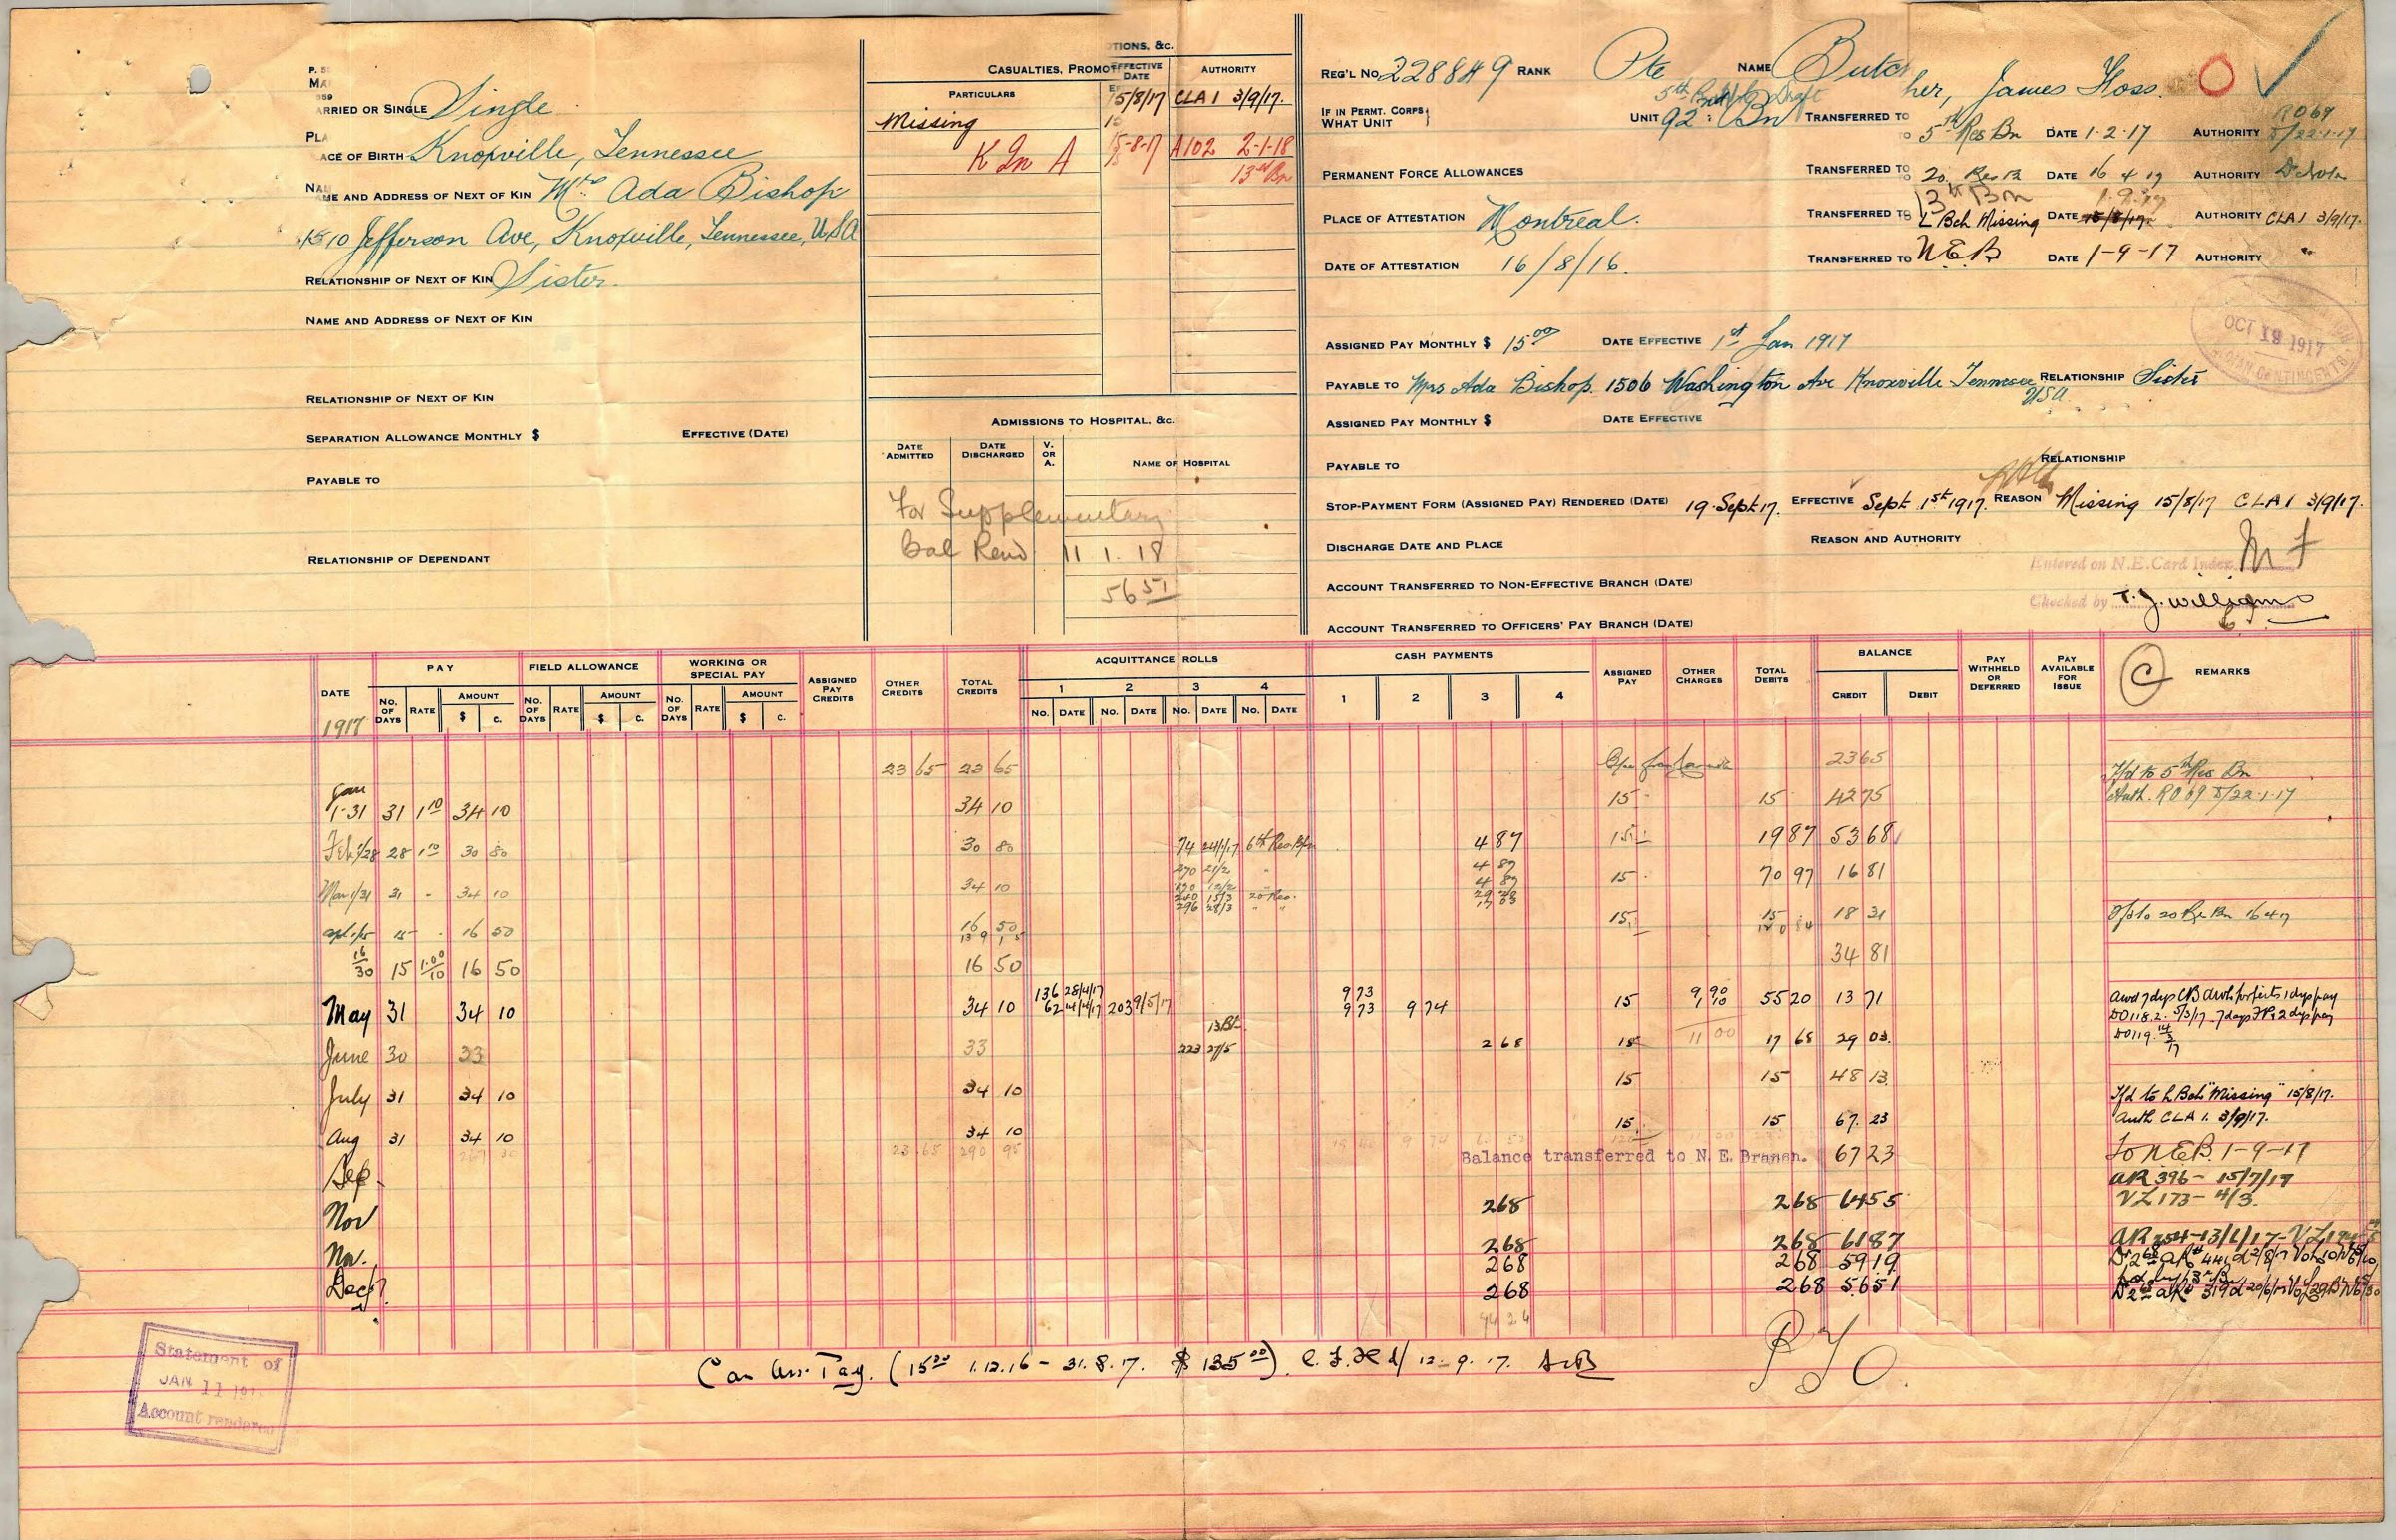 MARRIED OR SINGLE Single
PLACE OF BIRTH Knoxville, Tennessee
NAME AND ADDRESS OF NEXT OF KIN Mrs Ada Bishop
1510 Jefferson Ave, Knoxville, Tennessee, USA
RELATIONSHIP OF NEXT OF KIN Sister.
NAME AND ADDRESS OF NEXT OF KIN
RELATIONSHIP OF NEXT OF KIN
SEPARATION ALLOWANCE MONTHLY $ EFFECTIVE (DATE)
PAYABLE TO
RELATIONSHIP OF DEPENDANT
CASUALTIES, PROMOTIONS, &C.
PARTICULARS EFFECTIVE DATE AUTHORITY
Missing 15/8/17 CLA 1 3/9/17.
K In A 15-8-17 A102 2-1-18
13th Bn
ADMISSIONS TO HOSPITAL, &C.
DATE ADMITTED DATE DISCHARGED V. OR A. NAME OF HOSPITAL
For Supplementary
Bal Rend 11 1.18
56 51
REG'L NO. 228849 RANK Pte NAME Butcher, James Hoss.
5th Draft
IF IN PERMT. CORPS WHAT UNIT UNIT 92nd Bn TRANSFERRED TO 5th Res Bn DATE 1-2-17 AUTHORITY RO69 5/22-1-17
PERMANENT FORCE ALLOWANCES TRANSFERRED TO 20. Res B DATE 16 4 17 AUTHORITY
13th Bn 1.9.17
PLACE OF ATTESTATION Montreal. TRANSFERRED TO L Bch Missing DATE 15/8/17 AUTHORITY CLA 1 3/9/17.
DATE OF ATTESTATION 16/8/16. TRANSFERRED TO N.E.B DATE 1-9-17 AUTHORITY "
OCT 18 1917
CONTINGENTS
ASSIGNED PAY MONTHLY $ 15 00 DATE EFFECTIVE 1st Jan 1917
PAYABLE TO Mrs Ada Bishop. 1506 Washington Ave Knoxville Tennessee USA RELATIONSHIP Sister
ASSIGNED PAY MONTHLY $ DATE EFFECTIVE
PAYABLE TO RELATIONSHIP
STOP-PAYMENT FORM (ASSIGNED PAY) RENDERED (DATE) 19.Sept 17. EFFECTIVE Sept 1st 1917. REASON Missing 15/8/17 CLA 1 3/9/17.
DISCHARGE DATE AND PLACE REASON AND AUTHORITY
Entered on N.E. Card Index
ACCOUNT TRANSFERRED TO NON-EFFECTIVE BRANCH (DATE)
Checked by T. J. Williams
ACCOUNT TRANSFERRED TO OFFICERS' PAY BRANCH (DATE)
DATE PAY FIELD ALLOWANCE WORKING OR SPECIAL PAY ASSIGNED PAY CREDITS OTHER CREDITS TOTAL CREDITS ACQUITTANCE ROLLS CASH PAYMENTS ASSIGNED PAY OTHER CHARGES TOTAL DEBITS BALANCE PAY WITHHELD OR DEFERRED PAY AVAILABLE FOR ISSUE C REMARKS
1917 NO. OF DAYS RATE AMOUNT $ C. NO. OF DAYS RATE AMOUNT $ C. NO. OF DAYS RATE AMOUNT $ C. 1 NO. DATE 2 NO. DATE 3 NO. DATE 4 NO. DATE 1 2 3 4 CREDIT DEBIT
23 65 23 65 2365 Tfd to 5th Res Bn
Jan 1-31 31 1 10 34 10 34 10 15 15 4275 Auth. RO 69 5/22-1-17
Feb 1/28 28 1 10 30 80 30 80 74 24/1/17 6th Res Bn 4 87 15 1987 5368
Mar 1/31 31 - 34 10 34 10 270 21/2 4 87 15 7097 1681
240 15/3 20 Res.
296 28/3
Apl 1/15 15 16 50 16 50 15 15 18 31 Tfd to 20 Re Bn 16 4 17
16/30 15 1.00/10 16 50 16 50 34 81
May 31 34 10 34 10 136 28/4/17 62 14/4/17 203 9/5/17 9 73 9 73 9 74 15 9.90 1.10 5520 13 71 Awd 7 dys CB
DO118.2. 5/3/17. 7 days FP, 2 dys pay
June 30 33 33 13 Bn 223 27/5 2 68 15 11 00 17 68 29 03 DO119.
July 31 34 10 34 10 15 15 48 13 Tfd to L Bch "Missing" 15/8/17.
Auth CLA 1. 3/9/17.
Aug 31 34 10 34 10 15 15 67.23
23 65 290 95
Sep. Balance transferred to N. E. Branch. 6723 To NEB. 1-9-17
AR 396 - 15/7/17
VL 173 - 4/3.
Nov 268 268 6455
Nov. 268 268 6187
268 268 5919
Dec 268 268 5651
94 24
Can Ass. Pay. (15 00 1.12.16 - 31.8.17. $ 135 00).
Statement of
JAN 11 191
Account rendered